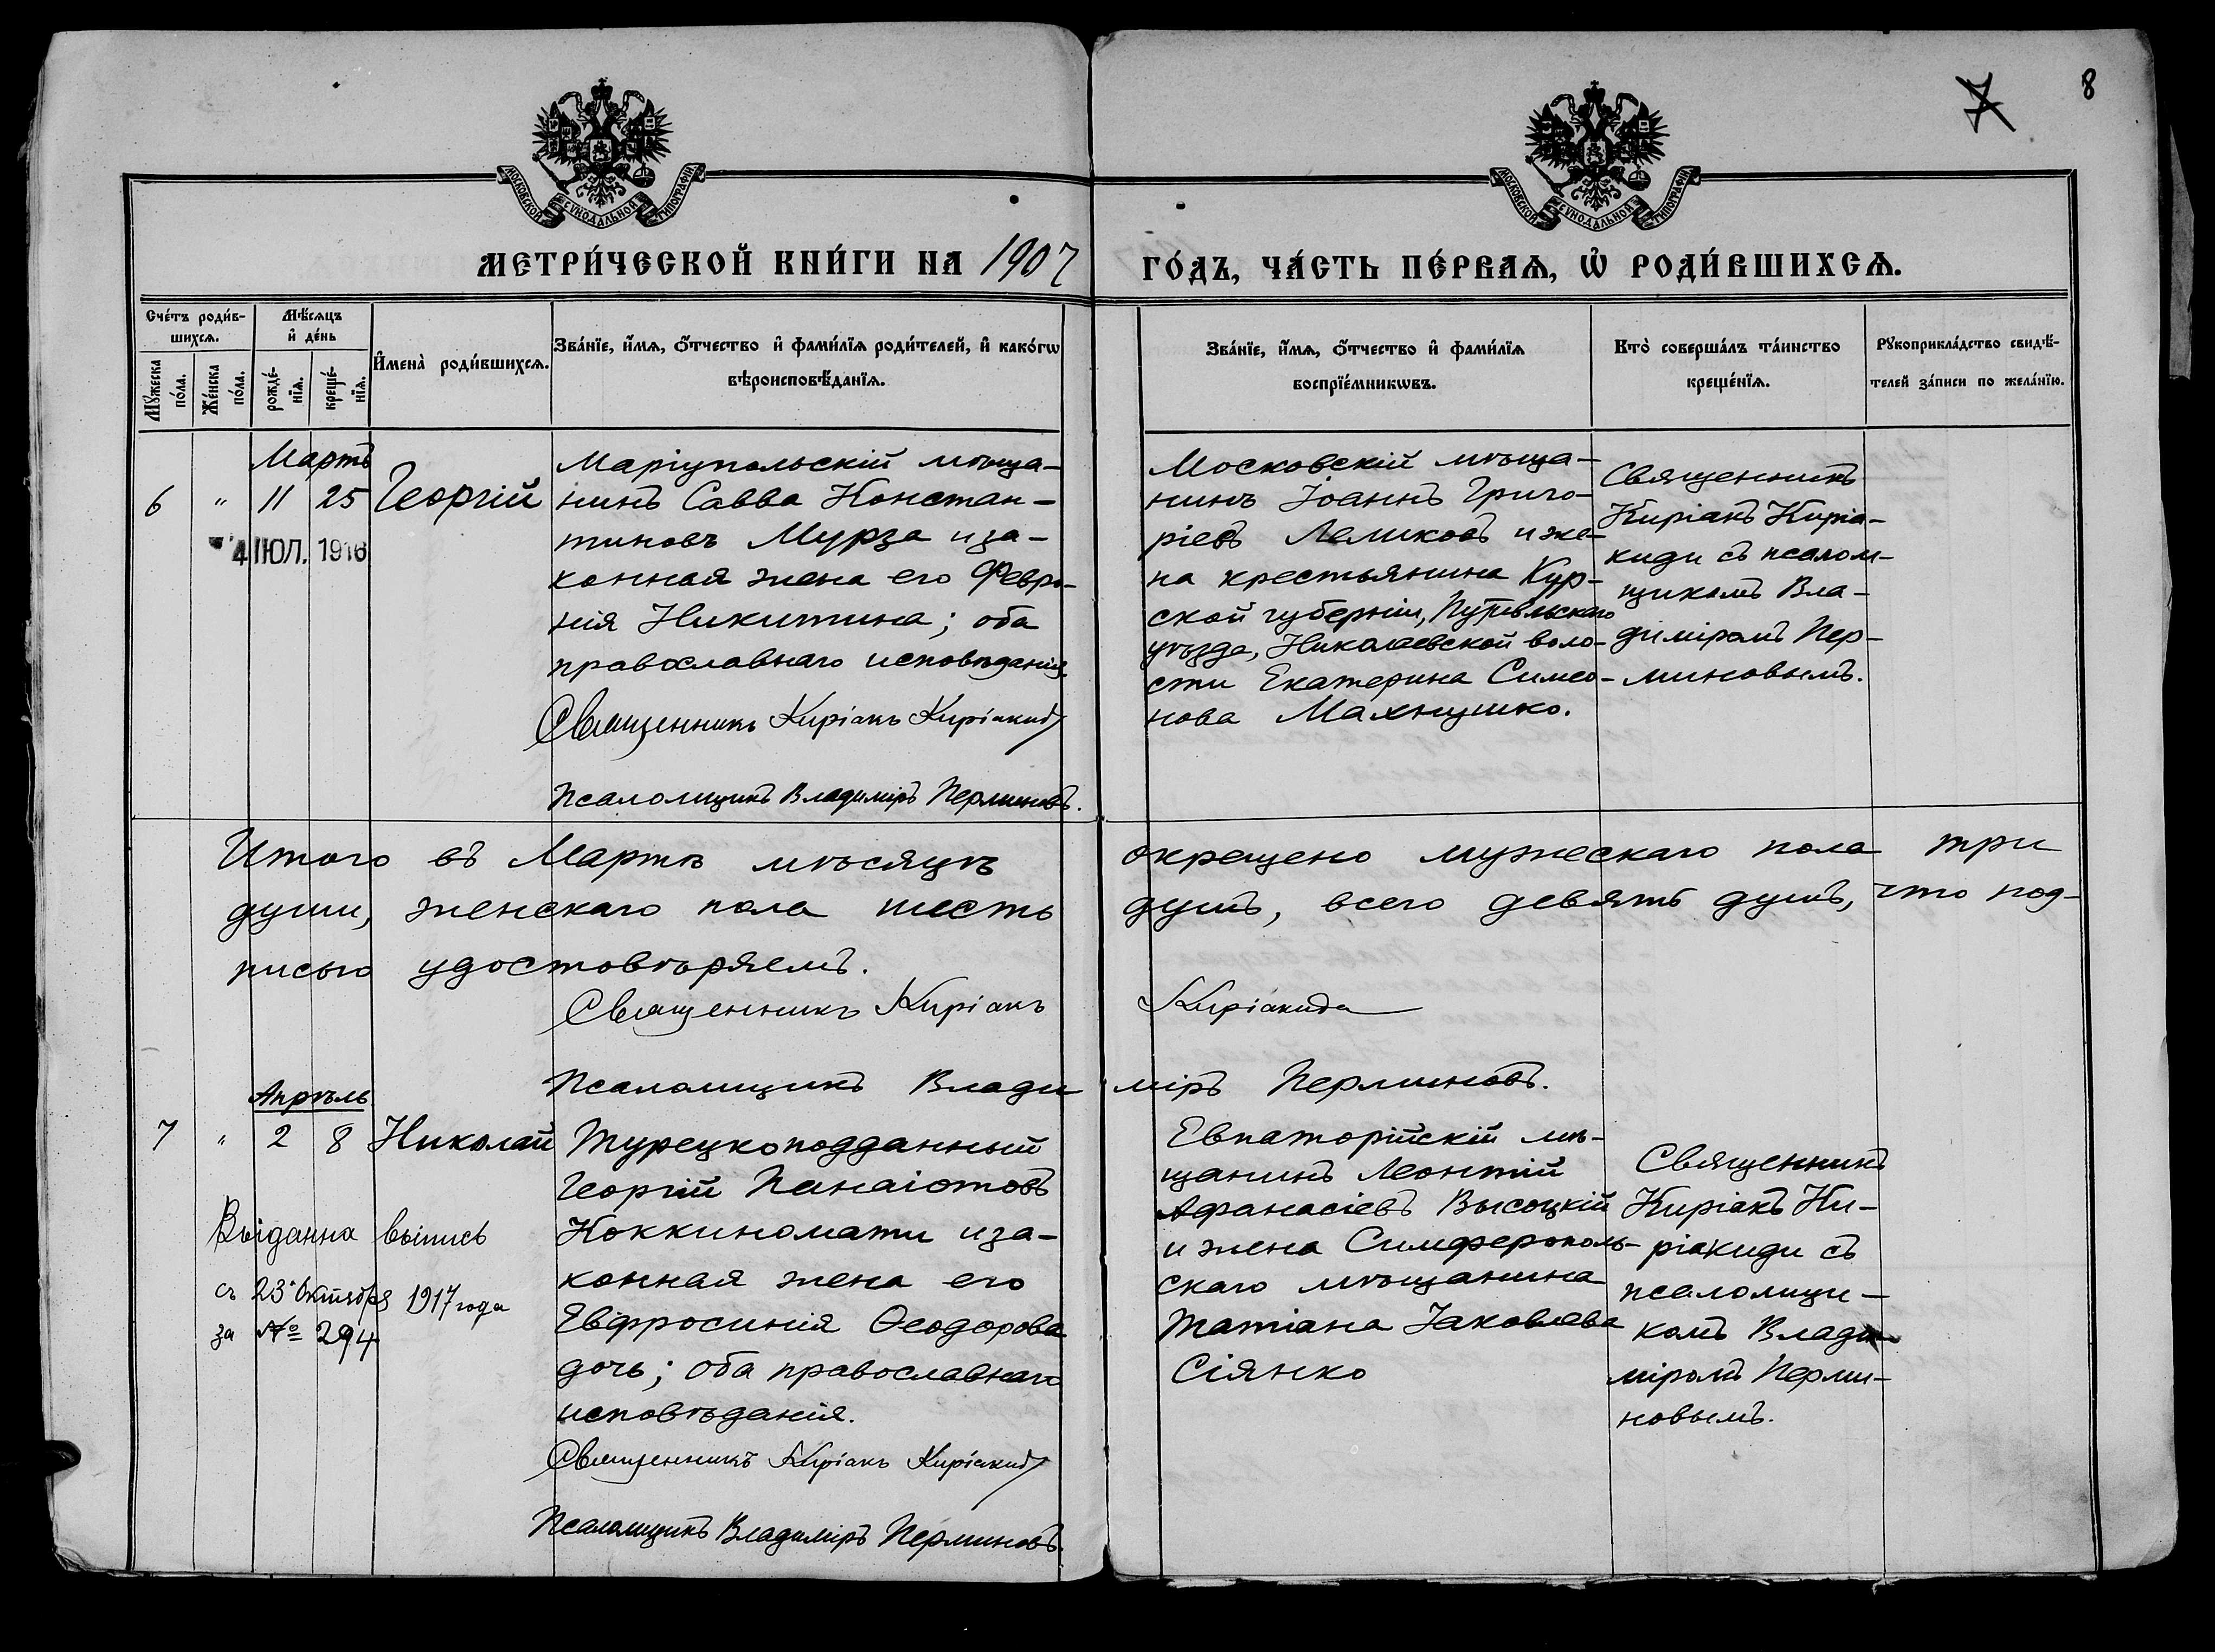 7 8
МОСКОВСКОЙ СѴНОДАЛЬНОЙ ТИПОГРАФІИ
МОСКОВСКОЙ СѴНОДАЛЬНОЙ ТИПОГРАФІИ
МЕТРИ́ЧЕСКОЙ КНИ́ГИ НА 1907 ГО́ДЪ, ЧА́СТЬ ПЕ́РВАѦ, Ѡ҆ РОДИ́ВШИХСѦ.
Сче́тъ роди́в-
шихсѧ.
Мꙋ́жеска по́ла.
Же́нска по́ла.
Мѣ́сѧцъ
и҆ де́нь
рожде́-
нїѧ.
креще́-
нїѧ.
И҆мена̀ роди́вшихсѧ.
Зва́нїе, и҆́мѧ, ѻ҆́тчество и҆ фами́лїѧ роди́телей, и҆ како́гѡ
вѣроисповѣ́данїѧ.
Зва́нїе, и҆́мѧ, ѻ҆́тчество и҆ фами́лїѧ
воспрїе́мникѡвъ.
Кто̀ соверша́лъ та́инство
креще́нїѧ.
Рꙋкоприкла́дство свидѣ́-
телей за́писи по жела́нїю.
Мартъ
6 " 11 25 Георгій
4 ІЮЛ. 1916
Маріупольскій мѣща-
нинъ Савва Констан-
тиновъ Мурза и за-
конная жена его Февро-
нія Никитина; оба
православнаго исповѣданія.
Священникъ Киріакъ Киріакиди
Псаломщикъ Владиміръ Перминовъ.
Московскій мѣща-
нинъ Іоаннъ Григо-
ріевъ Лемиковъ и же-
на крестьянина Кур-
ской губерніи, Путивльскаго
уѣзда, Николаевской воло-
сти Екатерина Симео-
нова Махнушко.
Священникъ
Киріакъ Киріа-
киди съ псалом-
щикомъ Вла-
диміромъ Пер-
миновымъ.
Итого въ Мартѣ мѣсяцѣ окрещено мужескаго пола три
души, женскаго пола шесть душъ, всего девять душъ, что под-
писью удостовѣряемъ.
Священникъ Киріакъ Киріакиди
Псаломщикъ Владиміръ Перминовъ.
Апрѣль
7 " 2 8 Николай
Выданна выпись
съ 23 Октября 1917 года
за № 294
Турецкоподданный
Георгій Панаіотовъ
Коккиномати и за-
конная жена его
Евфросинія Ѳеодорова
дочь; оба православнаго
исповѣданія.
Священникъ Киріакъ Киріакиди
Псаломщикъ Владиміръ Перминовъ.
Евпаторійскій мѣ-
щанинъ Леонтій
Афанасіевъ Высоцкій
и жена Симферополь-
скаго мѣщанина
Татіана Іаковлева
Сіянко
Священникъ
Киріакъ Ки-
ріакиди съ
псаломщи-
комъ Влади-
міромъ Перми-
новымъ.